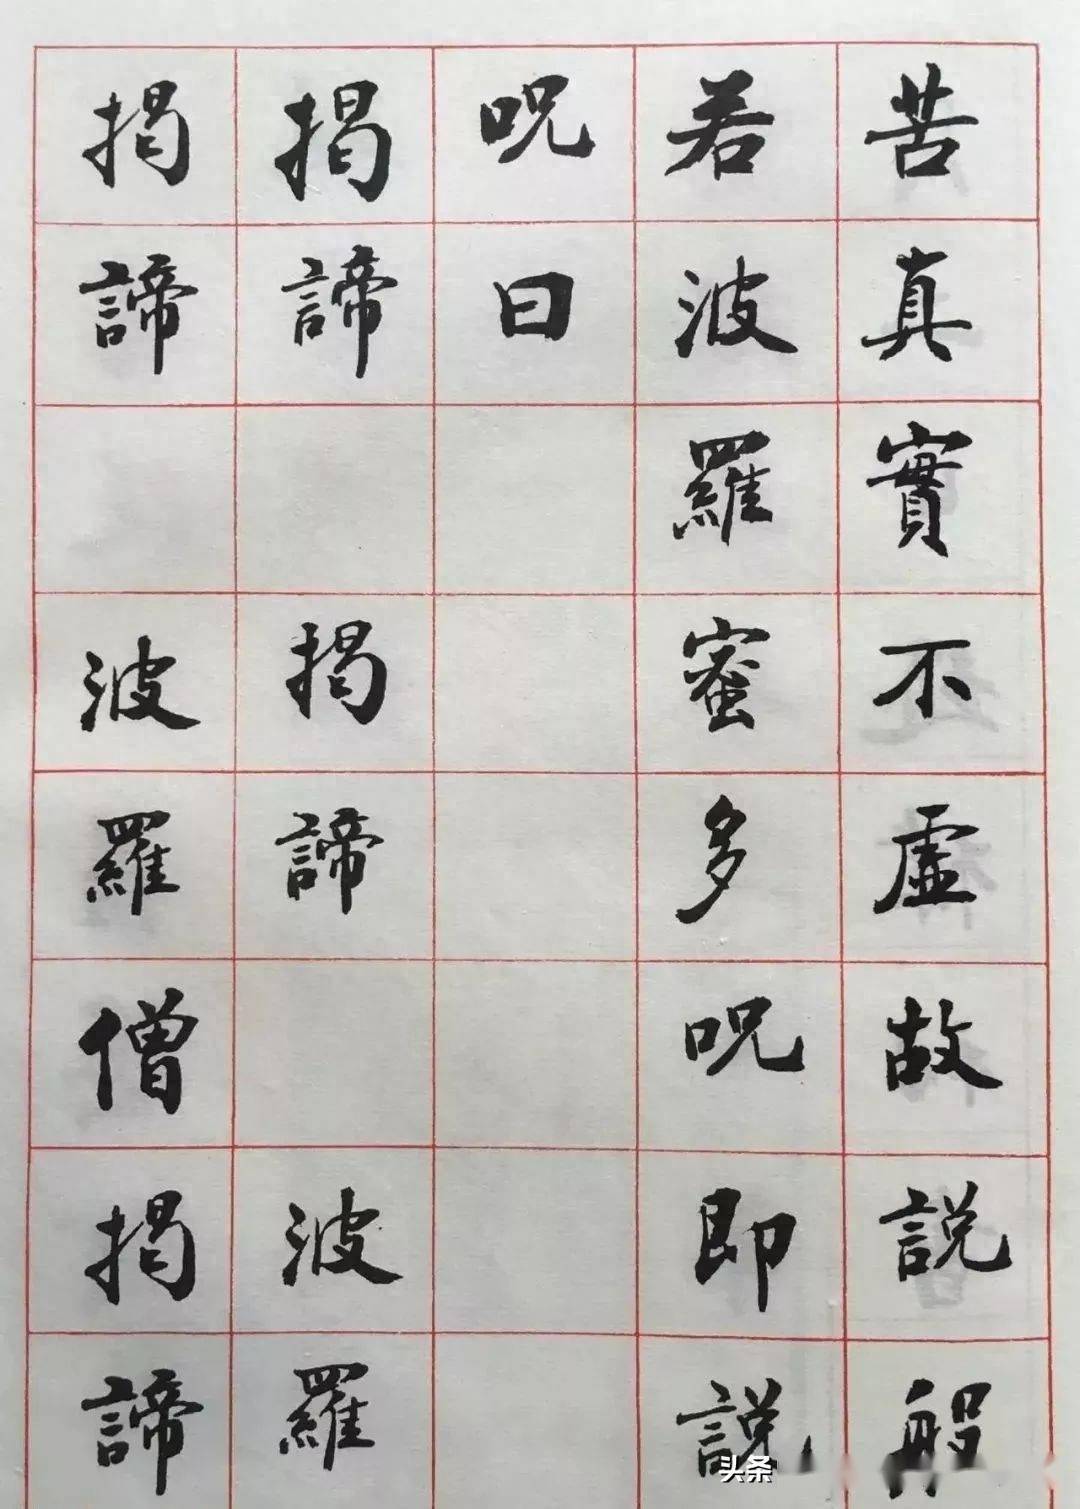 苦真實不虛故說般
若波羅蜜多呪即說
呪曰
揭諦 揭諦 波羅
揭諦 波羅僧揭諦
头条